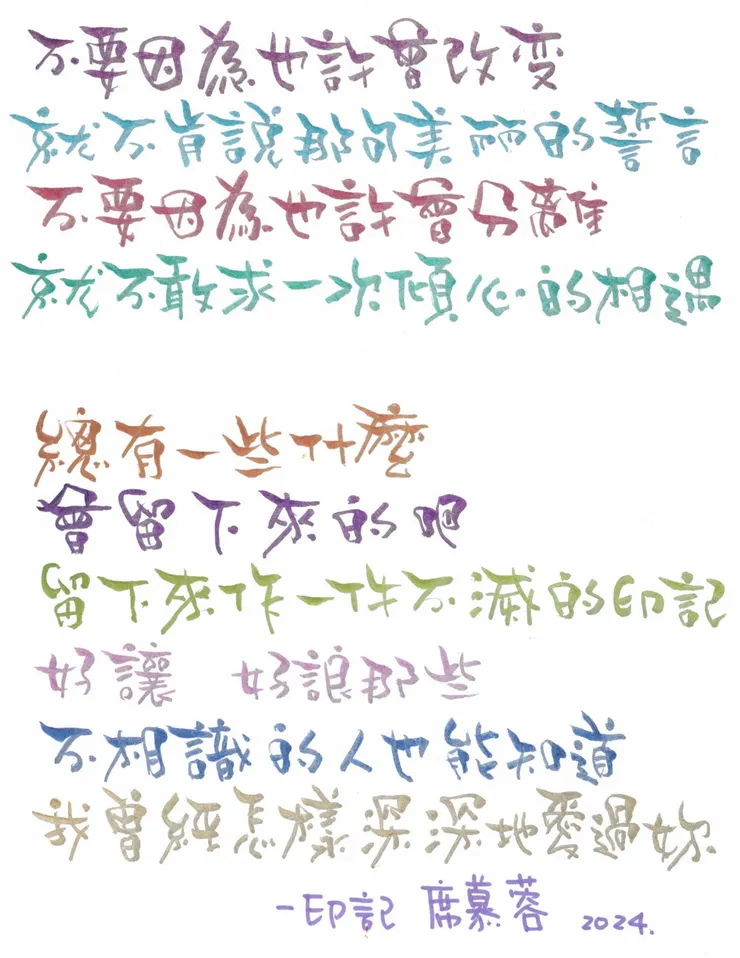 不要因為也許會改变
就不肯說那句美丽的誓言
不要因為也許會分離
就不敢求一次傾心的相遇
總有一些什麼
會留下來的吧
留下來作一件不滅的印記
好讓 好讓那些
不相識的人也能知道
我曾經怎樣深深地愛過妳
－印記 席慕蓉 2024.